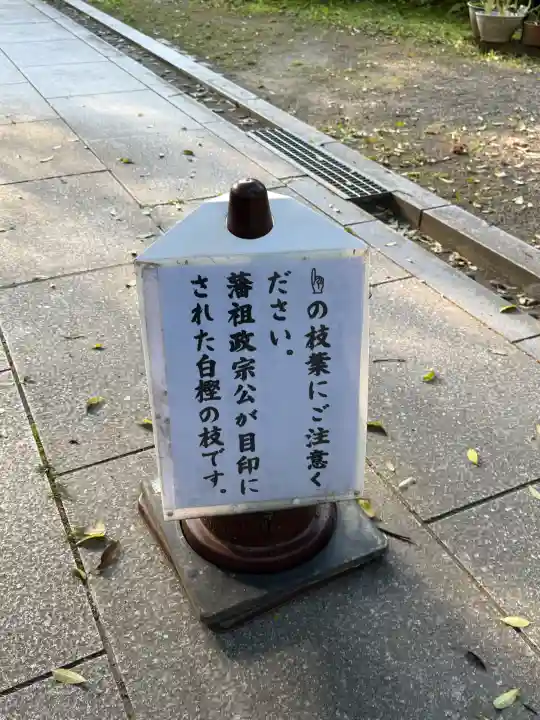 ☝の枝葉にご注意く
ださい。
藩祖政宗公が目印に
された白樫の枝です。